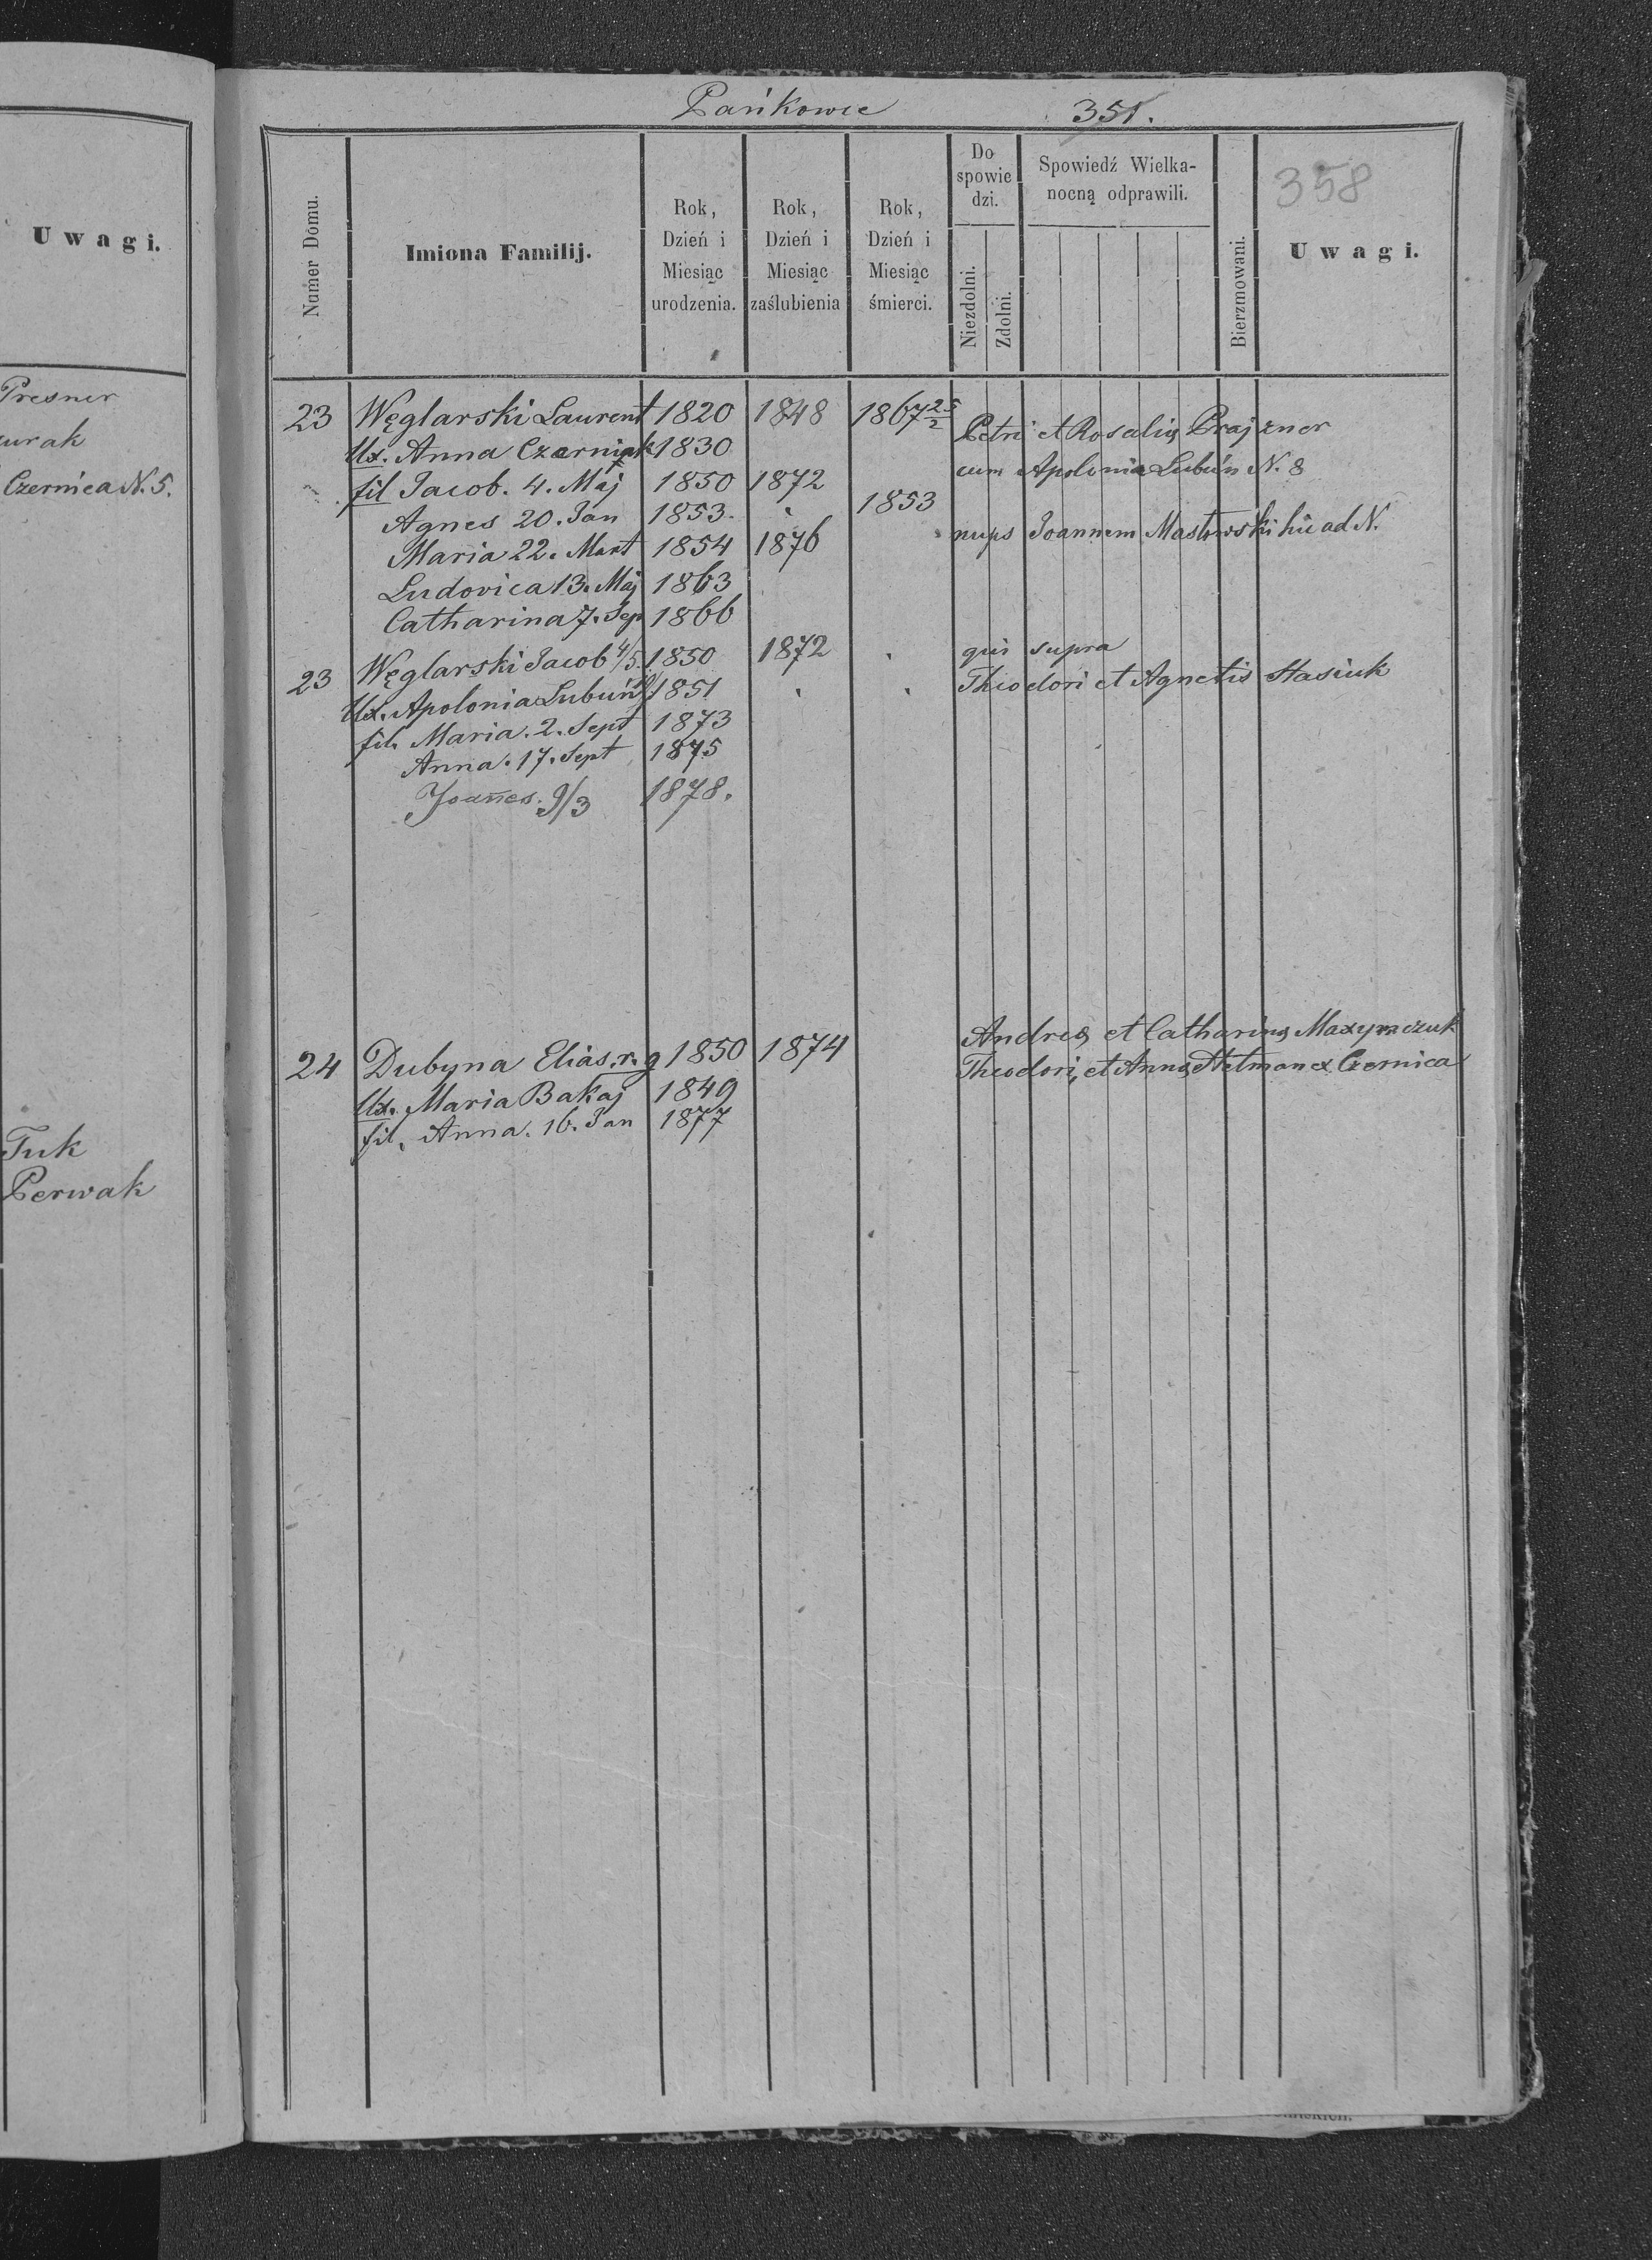 Pańkowce 351.
358
Uwagi.
Numer Domu.
Imiona Familij.
Rok, Dzień i Miesiąc urodzenia.
Rok, Dzień i Miesiąc zaślubienia
Rok, Dzień i Miesiąc śmierci.
Do spowie dzi.
Niezdolni.
Zdolni.
Spowiedź Wielka-
nocną odprawili.
Bierzmowani.
Uwagi.
Presner
urak
Czernica N. 5.
Tuk
Perwak
23 Węglarski Laurent 1820 1848 1867 25/2
Ux. Anna Czerniak 1830 Petri et Rosaliæ Prajzner
fil Jacob. 4. Maj 1850 1872 cum Apolonia Lubuń N. 8
Agnes 20. Jan 1853. 1853
Maria 22. Mart 1854 1876 nups Joannem Masłowski hic ad N.
Ludovica 13. Maj 1863
Catharina 7. Sep 1866
23 Węglarski Jacob 4/5. 1850 1872 qui supra
Ux. Apolonia Lubuń 1851 Theodori et Agnetis Stasiuk
fil. Maria. 2. Sept 1873
Anna. 17. Sept 1875
Joañes. 9/3 1878.
24 Dubyna Elias. r. g 1850 1874 Andreæ et Catharinæ Maxymczuk
Ux. Maria Bakaj 1849 Theodori, et Annæ Hetman ex Czernica
fil. Anna. 16. Jan 1877